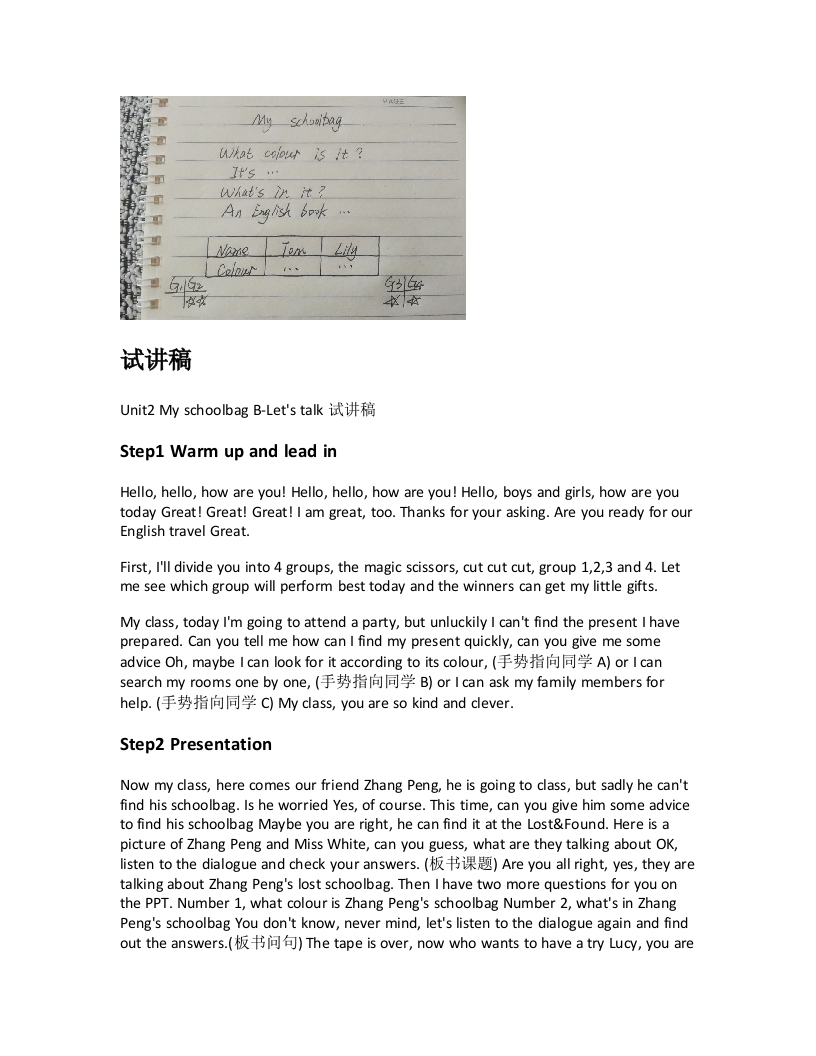 PAGE
My schoolbag
What colour is it?
It's ...
What's in it?
An English book ...
Name Tom Lily
Colour ... ...
G1 G2 G3 G4
试讲稿
Unit2 My schoolbag B-Let's talk 试讲稿
Step1 Warm up and lead in
Hello, hello, how are you! Hello, hello, how are you! Hello, boys and girls, how are you
today Great! Great! Great! I am great, too. Thanks for your asking. Are you ready for our
English travel Great.
First, I'll divide you into 4 groups, the magic scissors, cut cut cut, group 1,2,3 and 4. Let
me see which group will perform best today and the winners can get my little gifts.
My class, today I'm going to attend a party, but unluckily I can't find the present I have
prepared. Can you tell me how can I find my present quickly, can you give me some
advice Oh, maybe I can look for it according to its colour, (手势指向同学 A) or I can
search my rooms one by one, (手势指向同学 B) or I can ask my family members for
help. (手势指向同学 C) My class, you are so kind and clever.
Step2 Presentation
Now my class, here comes our friend Zhang Peng, he is going to class, but sadly he can't
find his schoolbag. Is he worried Yes, of course. This time, can you give him some advice
to find his schoolbag Maybe you are right, he can find it at the Lost&Found. Here is a
picture of Zhang Peng and Miss White, can you guess, what are they talking about OK,
listen to the dialogue and check your answers. (板书课题) Are you all right, yes, they are
talking about Zhang Peng's lost schoolbag. Then I have two more questions for you on
the PPT. Number 1, what colour is Zhang Peng's schoolbag Number 2, what's in Zhang
Peng's schoolbag You don't know, never mind, let's listen to the dialogue again and find
out the answers.(板书问句) The tape is over, now who wants to have a try Lucy, you are